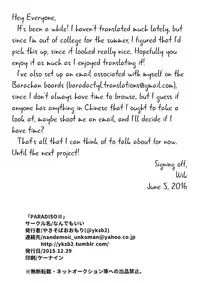 Hey Everyone,
It's been a while! I haven't translated much lately, but
since I'm out of college for the summer, I figured that I'd
pick this up, since it looked really nice. Hopefully you
enjoy it as much as I enjoyed translating it!
I've also set up an email associated with myself on the
Barachan boards (baradactyl.translations@gmail.com),
since I don't always have time to browse, but I guess if
anyone has anything in Chinese that I ought to take a
look at, maybe shoot me an email, and I'll decide if I
have time?
That's all that I can think of to talk about for now.
Until the next project!
Signing off,
Wib
June 5, 2016
『PARADISO#』
サークル名/なんでもいい
発行者/やきそばおおもり(@yksb2)
連絡先/nandemoii_unkoman@yahoo.co.jp
http://yksb2.tumblr.com/
発行日/2015.12.29
印刷/ケーナイン
※無断転載・ネットオークション等への出品禁止。